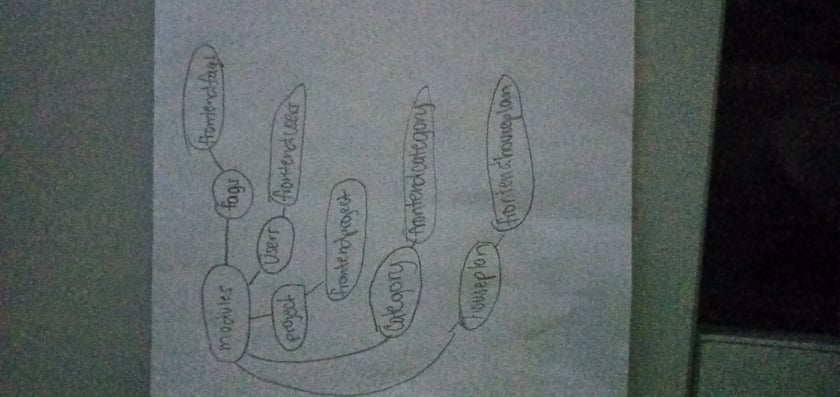 modules
faqs
frontendfaqs
Users
frontendusers
project
frontendproject
Category
frontendcategory
houseplan
frontendhouseplan